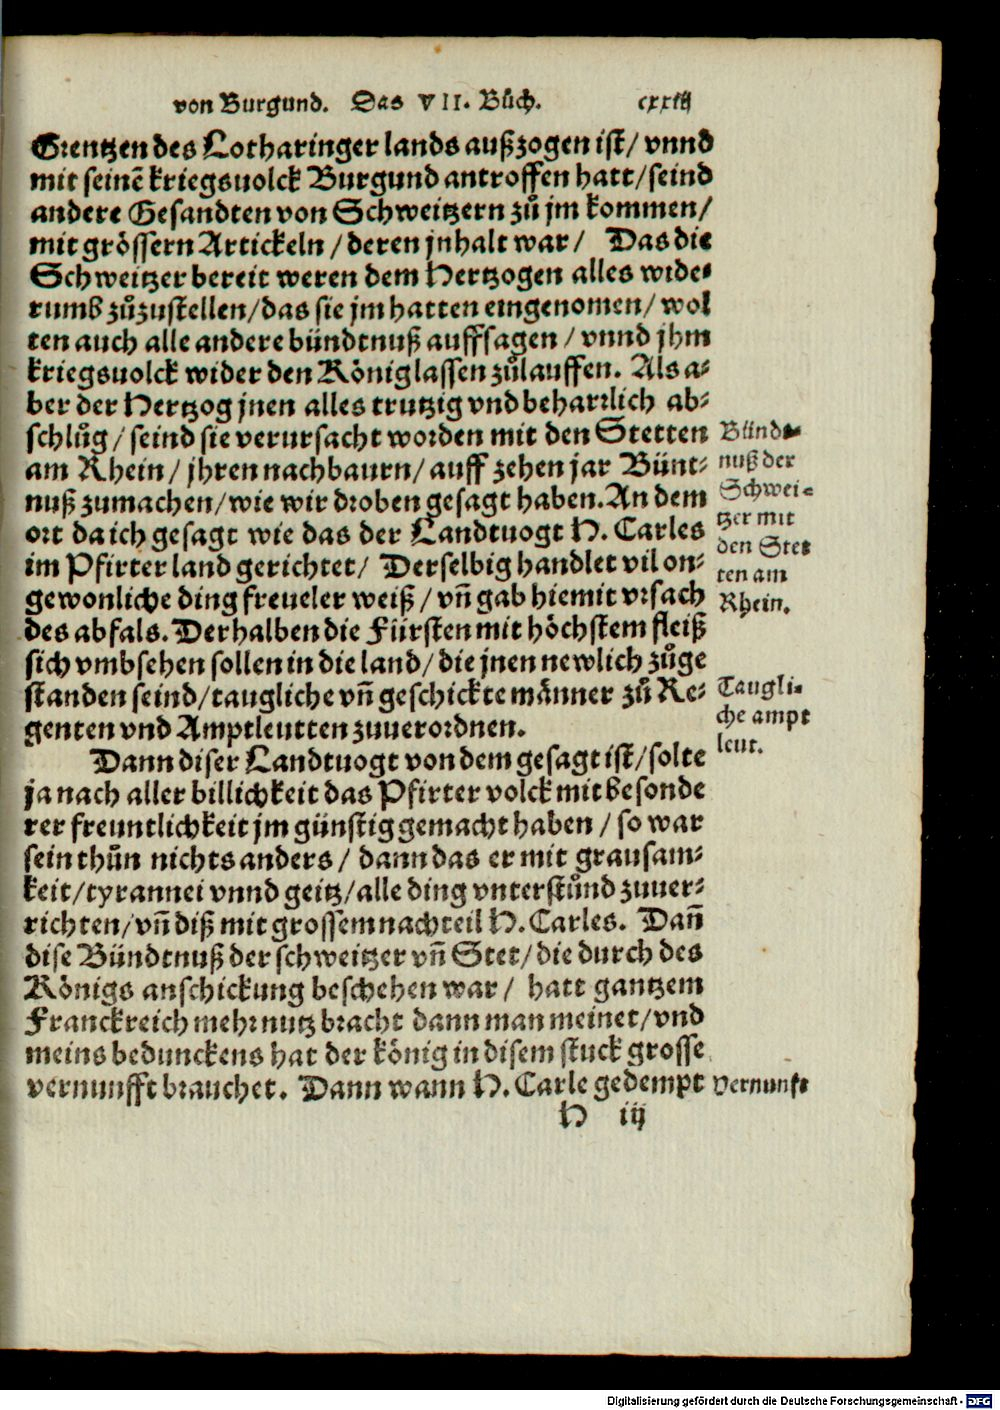 von Burgund. Das VII. Bůch. cxxiij
Grentzen des Lotharinger lands außzogen ist/ vnnd
mit seinẽ kriegsuolck Burgund antroffen hatt/seind
andere Gesandten von Schweitzern zů jm kommen/
mit grössern Artickeln /deren jnhalt war/ Das die
Schweitzer bereit weren dem Hertzogen alles wide⸗
rumb zůzustellen/das sie jm hatten eingenomen/ wol
ten auch alle andere bündtnuß auffsagen / vnnd jhm
kriegsuolck wider den König lassen zůlauffen. Als a⸗
ber der Hertzog jnen alles trutzig vnd beharrlich ab⸗
schlůg/ seind sie verursacht worden mit den Stetten
am Rhein/ jhren nachbaurn/ auff zehen jar Bünt⸗
nuß zumachen/wie wir droben gesagt haben. An dem
ort da ich gesagt wie das der Landtuogt H. Carles
im Pfirter land gerichtet/ Derselbig handlet vil on⸗
gewonliche ding freueler weiß/ vñ gab hiemit vrsach
des abfals. Derhalben die Fürsten mit höchstem fleiß
sich vmbsehen sollen in die land/ die jnen newlich zůge
standen seind/taugliche vñ geschickte männer zů Re⸗
genten vnd Amptleutten zuuerordnen.
Bünd⸗
nuß der
Schwei⸗
tzer mit
den Stet
ten am
Rhein.
Taugli⸗
che ampt
leut.
Dann diser Landtuogt von dem gesagt ist/solte
ja nach aller billichkeit das Pfirter volck mit besonde
rer freuntlichkeit jm günstig gemacht haben / so war
sein thůn nichts anders/ dann das er mit grausam⸗
keit/tyrannei vnnd geitz/alle ding vnterstůnd zuuer⸗
richten/vñ diß mit grossem nachteil H. Carles. Dañ
dise Bündtnuß der schweitzer vñ Stet/die durch des
Königs anschickung beschehen war/ hatt gantzem
Franckreich mehr nutz bracht dann man meinet/vnd
meins beduncKens hat der könig in disem stuck grosse
vernunfft brauchet. Dann wann H. Carle gedempt
vernunft
H iij
Digitalisierung gefördert durch die Deutsche Forschungsgemeinschaft - DFG